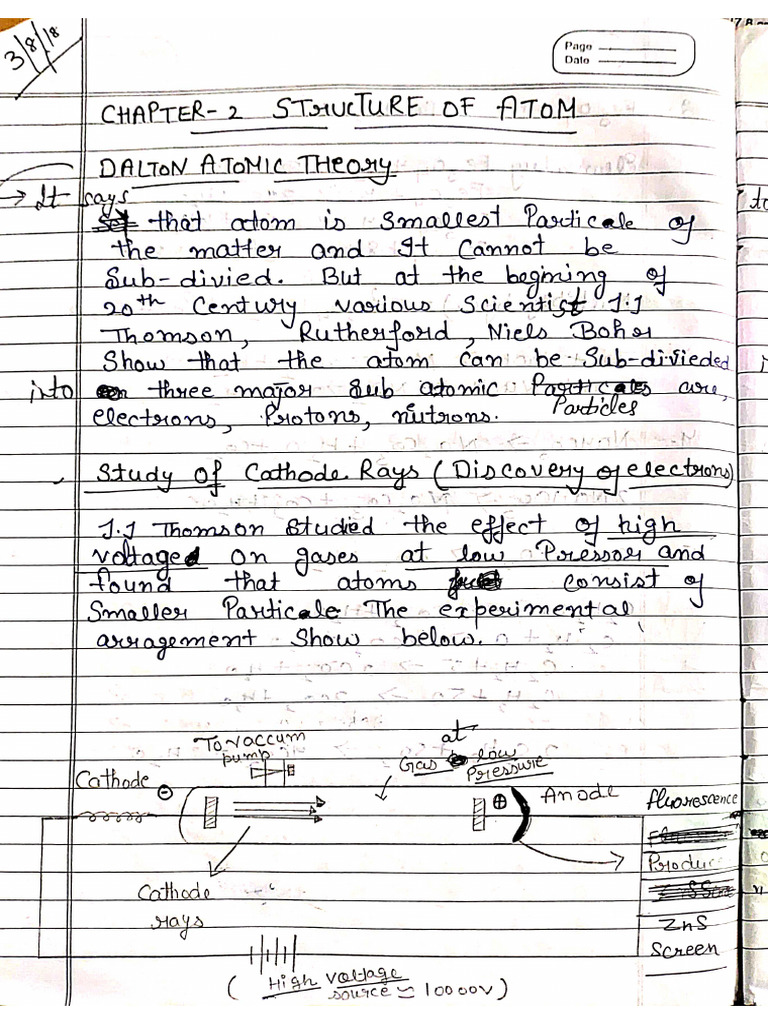 3/8/18
Page
Date
CHAPTER-2 STRUCTURE OF ATOM
DALTON ATOMIC THEORY
→ It says
that atom is smallest Particale of
the matter and It cannot be
Sub-divied. But at the begining of
20th Century various Scientist J.J
Thomson, Rutherford, Niels Bohor
Show that the atom can be Sub-divieded
into three major Sub atomic Particals are,
Particles
electrons, Protons, nutrons.
Study of Cathode Rays (Discovery of electrons)
J.J Thomson Studied the effect of high
voltaged on gases at low Pressor and
found that atoms consist of
Smaller Particale The experimental
arragement Show below.
To vaccum
pump
at
Gas low
Pressure
Cathode ⊖
⊕ Anode
fluorescence
Produc
Cathode
rays
ZnS
Screen
( High voltage
source ≃ 10000V)